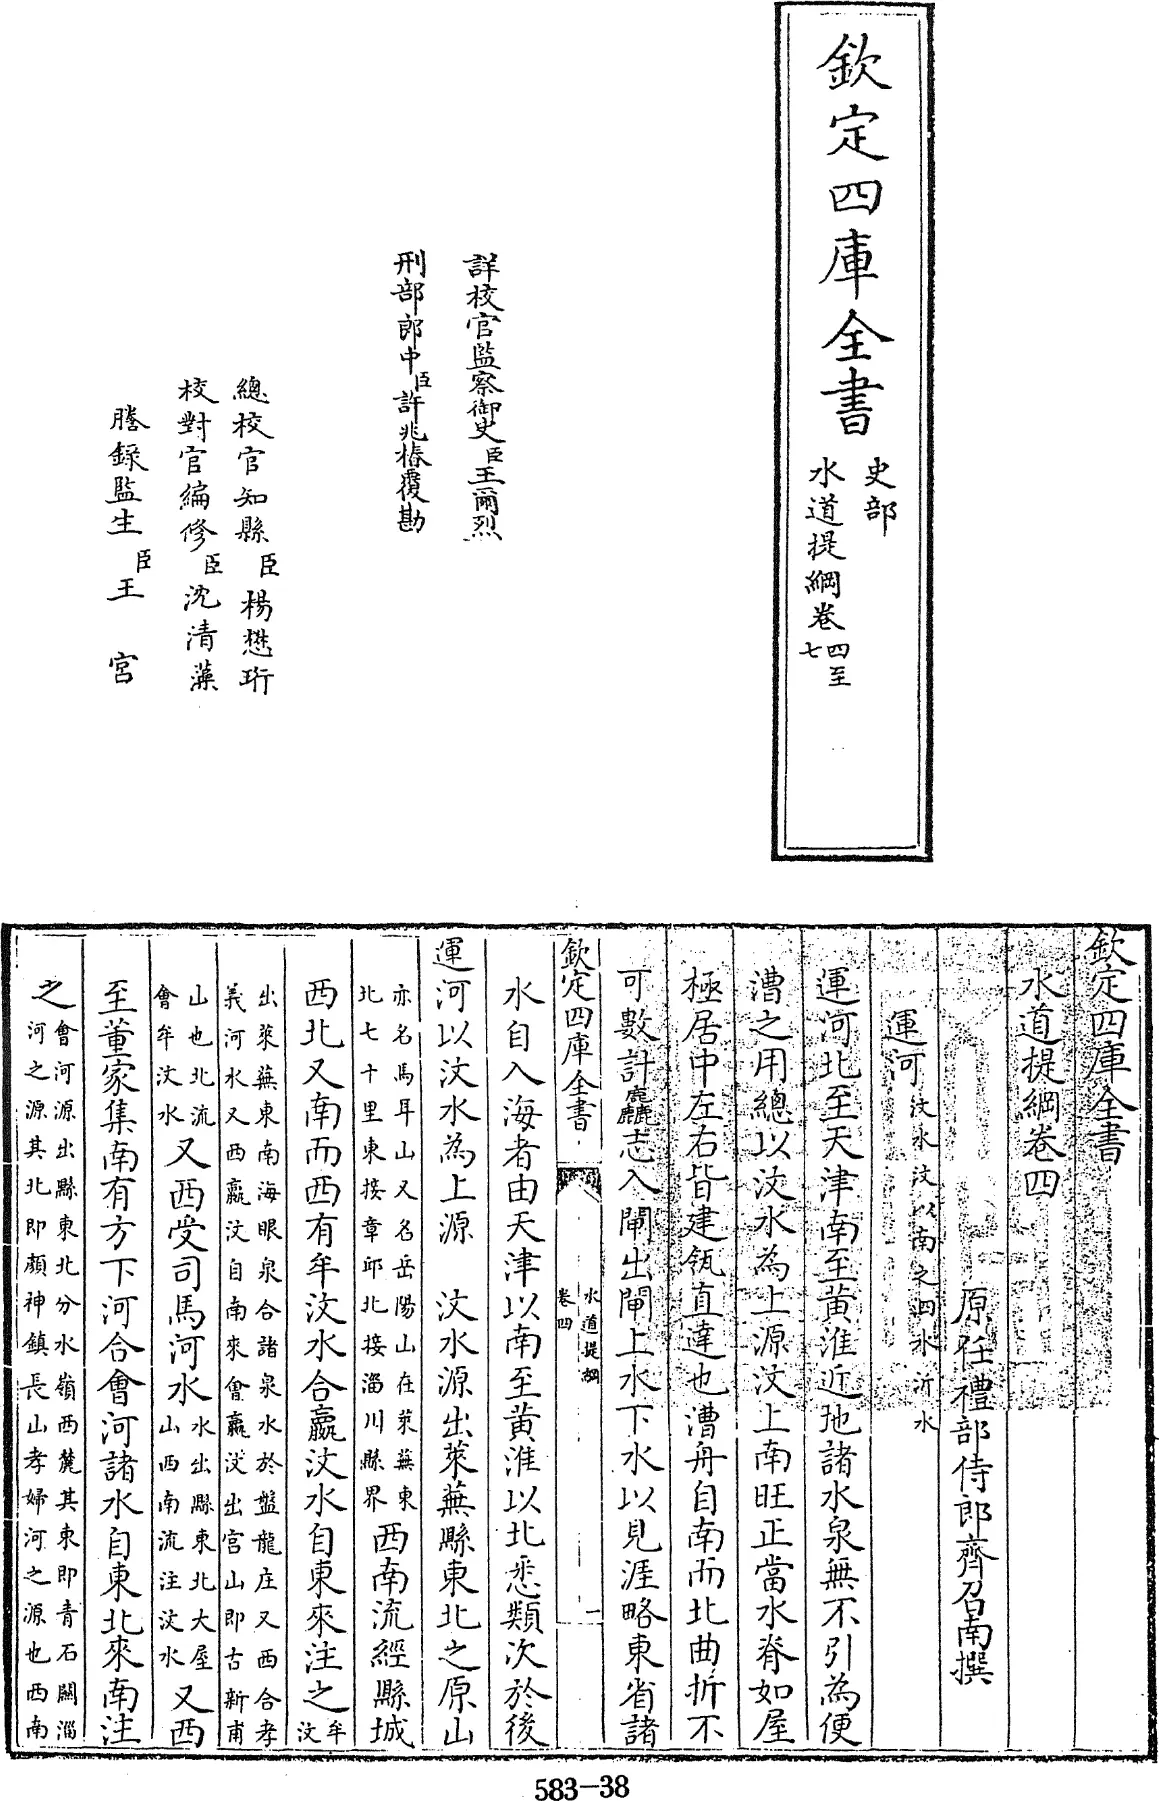 欽定四庫全書
史部
水道提綱卷四至七
詳校官監察御史臣王爾烈
刑部郎中臣許兆椿覆勘
總校官知縣臣楊懋珩
校對官編修臣沈清藻
謄錄監生臣王宮
欽定四庫全書
水道提綱卷四
原任禮部侍郎齊召南撰
運河汶水汶以南之泗水沂水
運河北至天津南至黄淮近地諸水泉無不引為便
漕之用總以汶水為上源汶上南旺正當水脊如屋
極居中左右皆建瓴直達也漕舟自南而北曲折不
可數計麤志入閘出閘上水下水以見涯略東省諸
欽定四庫全書
水道提綱
卷四
一
水自入海者由天津以南至黄淮以北悉類次於後
運河以汶水為上源 汶水源出萊蕪縣東北之原山
亦名馬耳山又名岳陽山在萊蕪東北七十里東接章邱北接淄川縣界西南流經縣城
西北又南而西有牟汶水合嬴汶水自東來注之牟汶
出萊蕪東南海眼泉合諸泉水於盤龍庄又西合孝義河水又西嬴汶自南來會嬴汶出宫山即古新甫
山也北流會牟汶水又西受司馬河水水出縣東北大屋山西南流注汶水又西
至董家集南有方下河合會河諸水自東北來南注
之會河源出縣東北分水嶺西麓其東即青石關淄河之源其北即顔神鎮長山孝婦河之源也西南
583-38